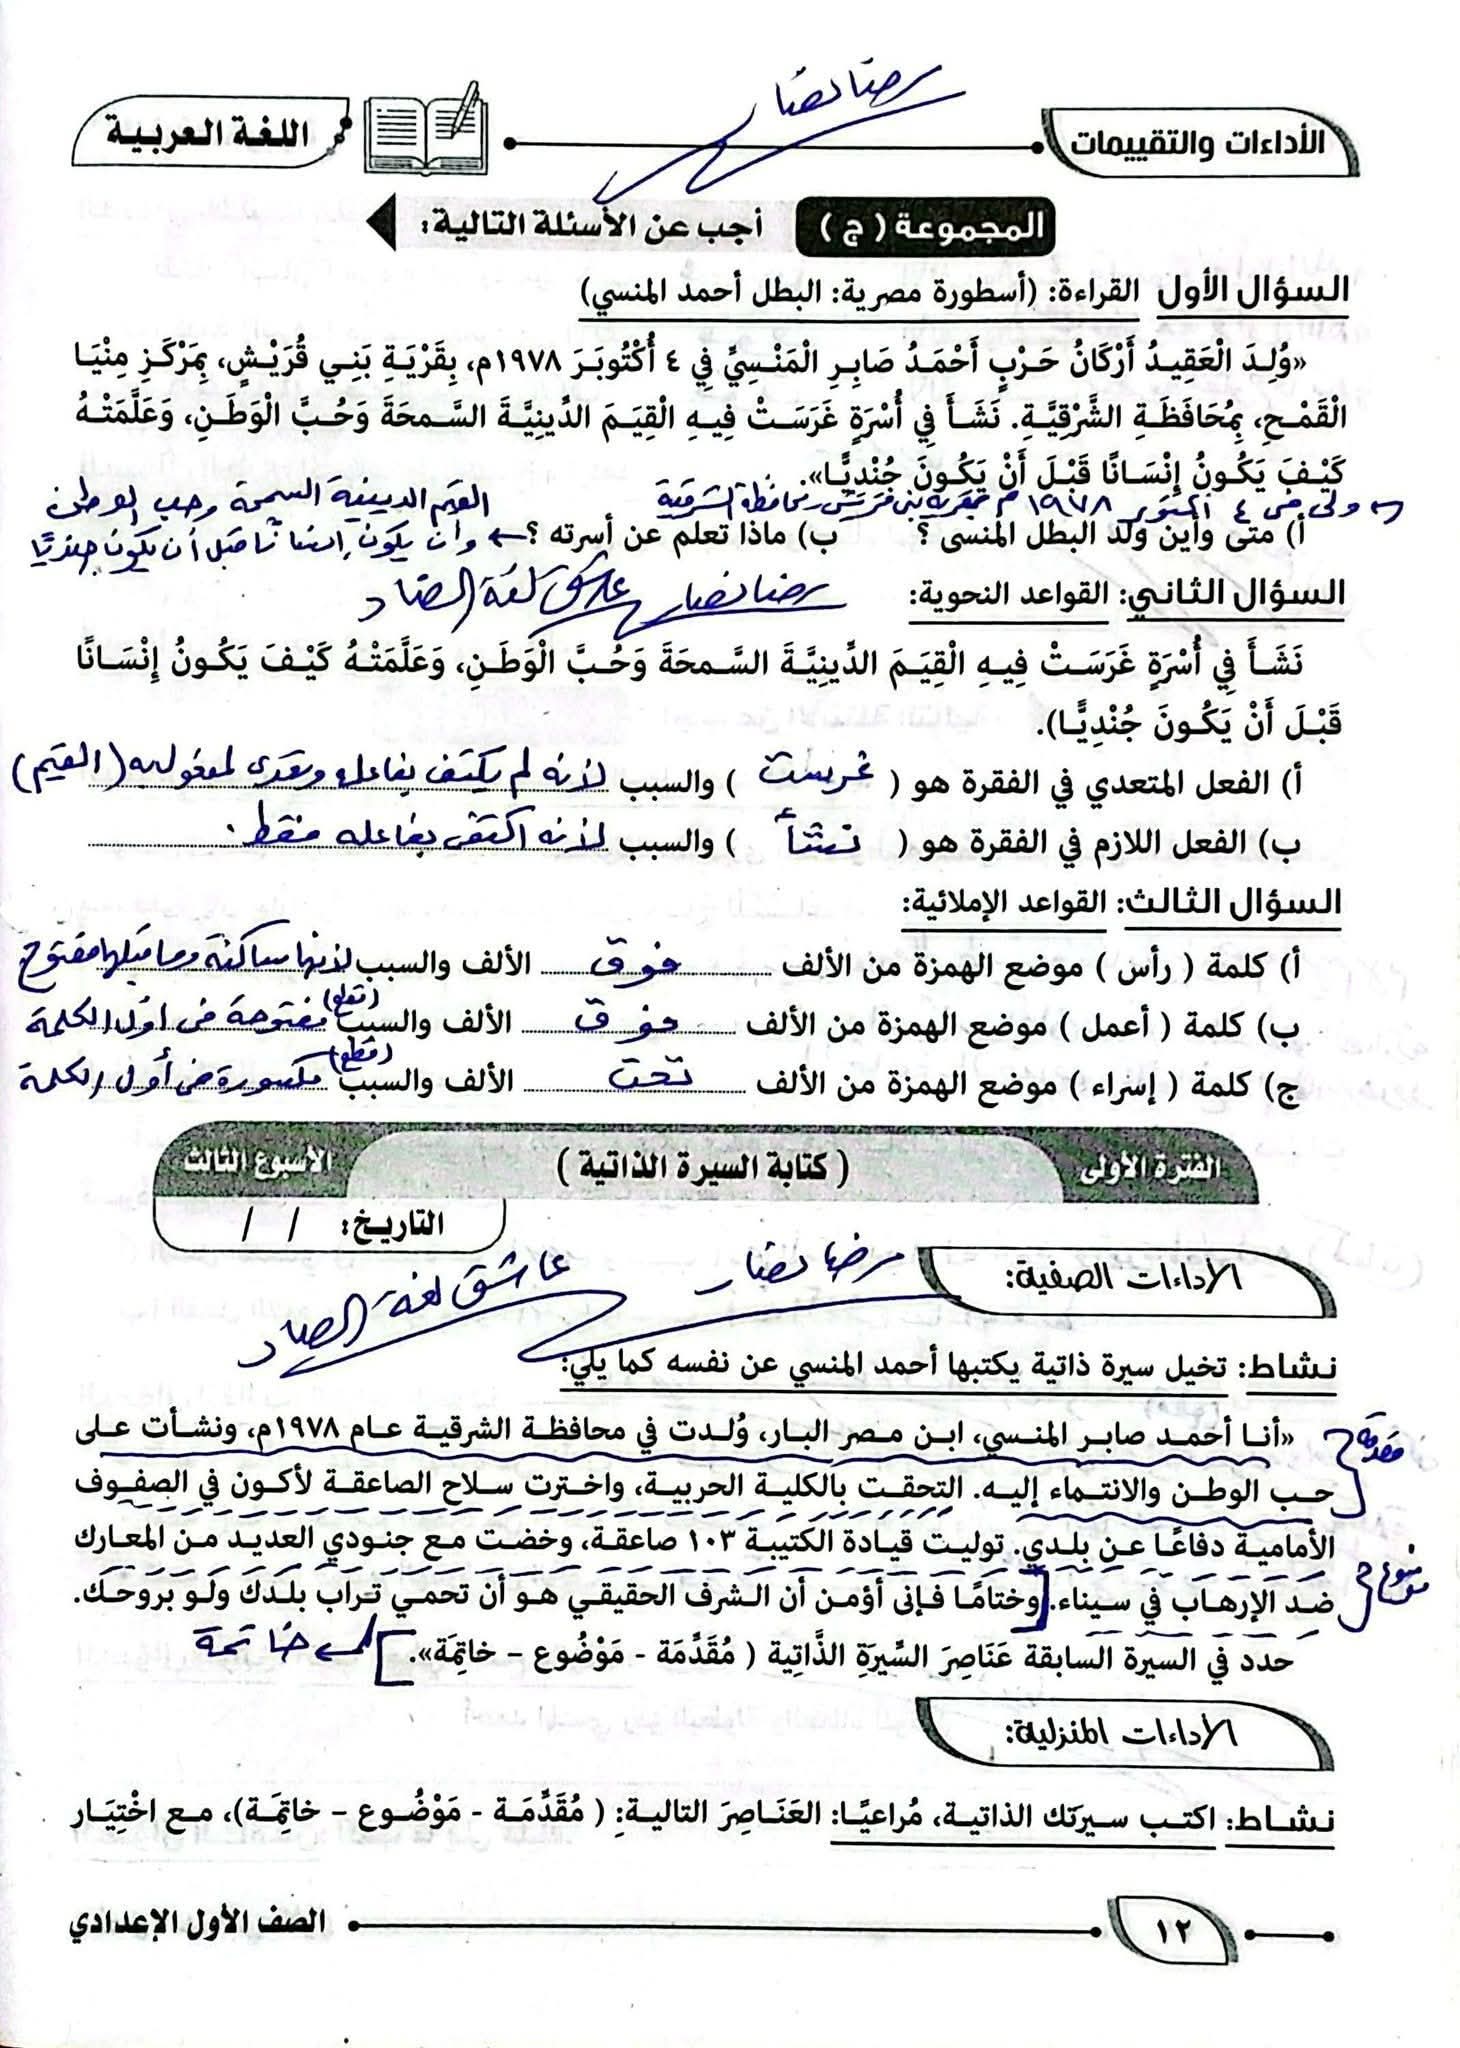 رضا نصار
الأداءات والتقييمات
اللغة العربية
المجموعة ( ج ) أجب عن الأسئلة التالية:
السؤال الأول القراءة: (أسطورة مصرية: البطل أحمد المنسي)
«وُلِدَ الْعَقِيدُ أَرْكَانُ حَرْبٍ أَحْمَدُ صَابِرِ الْمَنْسِيُّ فِي ٤ أُكْتُوبَرَ ١٩٧٨م، بِقَرْيَةِ بَنِي قُرَيْشٍ، بِمَرْكَزِ مِنْيَا
الْقَمْحِ، بِمُحَافَظَةِ الشَّرْقِيَّةِ. نَشَأَ فِي أُسْرَةٍ غَرَسَتْ فِيهِ الْقِيَمَ الدِّينِيَّةَ السَّمحَةَ وَحُبَّ الْوَطَنِ، وَعَلَّمَتْهُ
كَيْفَ يَكُونُ إِنْسَانًا قَبْلَ أَنْ يَكُونَ جُنْدِيًّا».
ولد فى ٤ أكتوبر ١٩٧٨ م بقرية بنى قريش بمحافظة الشرقية
القيم الدينية السمحة وحب الوطن
أ) متى وأين ولد البطل المنسى ؟ ب) ماذا تعلم عن أسرته ؟ وأن يكون إنسانا قبل أن يكون جنديًا
السؤال الثاني: القواعد النحوية: رضا نصار عاشق لغة الضاد
نَشَأَ فِي أُسْرَةٍ غَرَسَتْ فِيهِ الْقِيَمَ الدِّينِيَّةَ السَّمحَةَ وَحُبَّ الْوَطَنِ، وَعَلَّمَتْهُ كَيْفَ يَكُونُ إِنْسَانًا
قَبْلَ أَنْ يَكُونَ جُنْدِيًّا).
أ) الفعل المتعدي في الفقرة هو ( غرست ) والسبب لأنه لم يكتف بفاعله وتعدى لمفعول به (القيم)
ب) الفعل اللازم في الفقرة هو ( نشأ ) والسبب لأنه اكتفى بفاعله فقط.
السؤال الثالث: القواعد الإملائية:
أ) كلمة ( رأس ) موضع الهمزة من الألف فوق الألف والسبب لأنها ساكنة وما قبلها مفتوح
ب) كلمة ( أعمل ) موضع الهمزة من الألف فوق الألف والسبب (قطع) مفتوحة فى أول الكلمة
ج) كلمة ( إسراء ) موضع الهمزة من الألف تحت الألف والسبب (قطع) مكسورة فى أول الكلمة
الفترة الأولى ( كتابة السيرة الذاتية ) الأسبوع الثالث
التاريخ: / /
الأداءات الصفية: رضا نصار عاشق لغة الضاد
نشاط: تخيل سيرة ذاتية يكتبها أحمد المنسي عن نفسه كما يلي:
«أنا أحمد صابر المنسي، ابن مصر البار، وُلدت في محافظة الشرقية عام ١٩٧٨م، ونشأت على
مقدمة
حب الوطن والانتماء إليه. التحقت بالكلية الحربية، واخترت سلاح الصاعقة لأكون في الصفوف
الأمامية دفاعًا عن بلدي. توليت قيادة الكتيبة ١٠٣ صاعقة، وخضت مع جنودي العديد من المعارك
موضوع
ضد الإرهاب في سيناء. وختامًا فإنى أؤمن أن الشرف الحقيقي هو أن تحمي تراب بلدك ولو بروحك.
حدد في السيرة السابقة عَنَاصِرَ السِّيرَةِ الذَّاتِية ( مُقَدِّمَة - مَوْضُوع - خاتِمَة)». خاتمة
الأداءات المنزلية:
نشاط: اكتب سيرتك الذاتية، مُراعيًا: العَنَاصِرَ التالية: ( مُقَدِّمَة - مَوْضُوع - خاتِمَة)، مع اخْتِيَار
١٢
الصف الأول الإعدادي